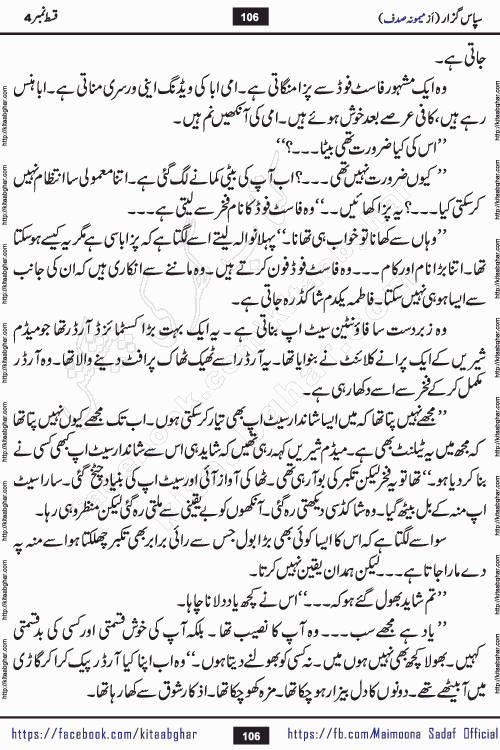 سپاس گزار (از میمونہ صدف)
106
قسط نمبر 4
جاتی ہے۔
وہ ایک مشہور فاسٹ فوڈ سے پزا منگاتی ہے۔ امی ابا کی ویڈنگ اینی ورسری مناتی ہے۔ ابا ہنس
رہے ہیں، کافی عرصے بعد خوش ہوئے ہیں۔ امی کی آنکھیں نم ہیں۔
’’اس کی کیا ضرورت تھی بیٹا۔۔۔؟‘‘
’’کیوں ضرورت نہیں تھی۔۔۔؟ اب آپ کی بیٹی کمانے لگ گئی ہے۔ اتنا معمولی سا انتظام نہیں
کر سکتی کیا۔۔۔؟ یہ پزا کھائیں۔۔‘‘ وہ فاسٹ فوڈ کا نام فخر سے لیتی ہے۔۔۔
’’وہاں سے کھانا تو خواب ہی تھا نا۔‘‘ پہلا نوالہ لیتے اسے لگتا ہے کہ پزا باسی ہے مگر یہ کیسے ہو سکتا
تھا۔ اتنا بڑا نام اور کام۔۔۔ وہ فاسٹ فوڈ فون کرتے ہیں۔ وہ ماننے سے انکاری ہیں کہ ان کی جانب
سے ایسا ہو ہی نہیں سکتا۔ فاطمہ یکدم شاکڈ رہ جاتی ہے۔
وہ زبردست سا فاؤنٹین سیٹ اپ بناتی ہے۔ یہ ایک بہت بڑا کسٹمائزڈ آرڈر تھا جو میڈم
شیریں کے ایک پرانے کلائنٹ نے بنوایا تھا۔ یہ آرڈر اسے ٹھیک ٹھاک پرافٹ دینے والا تھا۔ وہ آرڈر
مکمل کر کے فخر سے اسے دکھا رہی ہے۔
’’مجھے نہیں پتا تھا کہ میں ایسا شاندار سیٹ اپ بھی تیار کر سکتی ہوں۔ اب تک مجھے کیوں نہیں پتا تھا
کہ مجھ میں یہ ٹیلنٹ بھی ہے۔ میڈم شیریں کہہ رہی تھیں کہ شاید ہی اس سے شاندار سیٹ اپ کبھی کسی نے
بنا کر دیا ہو۔‘‘ تھا تو یہ فخر لیکن تکبر کی بو آ رہی تھی۔ ٹھا کی آواز آئی اور سیٹ اپ کی بنیاد چیخ گئی۔ سارا سیٹ
اپ منہ کے بل بیٹھ گیا۔ وہ شاکڈ سی دیکھتی رہ گئی۔ آنکھوں کو بے یقینی سے ملتی رہ گئی لیکن منظر وہی رہا۔
سو اسے لگتا ہے کہ اس کا ایسا کوئی بھی بڑا بول جس سے رائی برابر بھی تکبر چھلکتا ہو اسے منہ پہ
دے مارا جاتا ہے۔۔۔ لیکن ہمدان یقین نہیں کرتا۔
’’تم شاید بھول گئے ہو کہ۔۔۔‘‘ اس نے کچھ یاد دلانا چاہا۔
’’یاد ہے مجھے سب۔۔۔ وہ آپ کا نصیب تھا۔ بلکہ آپ کی خوش قسمتی اور کسی کی بد قسمتی
کہیں۔ بھولا کچھ بھی نہیں ہوں میں۔ نہ کسی کو بھولنے دیتا ہوں۔‘‘ وہ اب اپنا کیا آرڈر پیک کرا کر گاڑی
میں آ بیٹھے تھے۔ دونوں کا دل بیزار ہو چکا تھا۔ مزہ کھو چکا تھا۔ اذکار شوق سے کھا رہا تھا۔
https://facebook.com/kitaabghar
106
https://fb.com/Maimoona Sadaf Official
http://kitaabghar.com